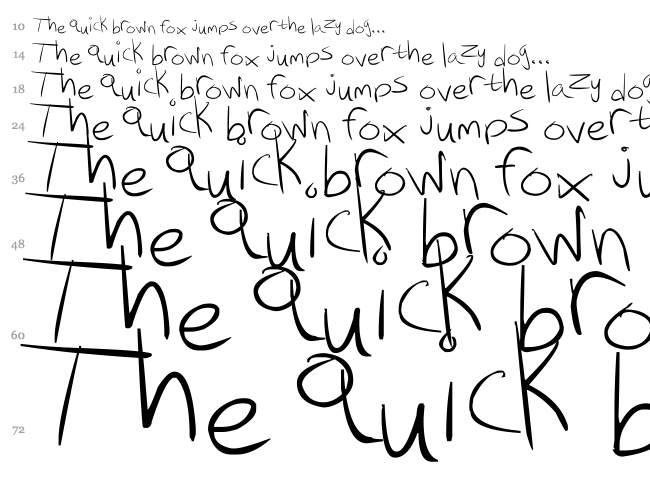 10 The quick brown fox jumps over the lazy dog...
14 The quick brown fox jumps over the lazy dog...
18 The quick brown fox jumps over the lazy dog
24 The quick brown fox jumps over t
36 The quick brown fox ju
48 The quick brown
60 The quick bro
72 The quick b